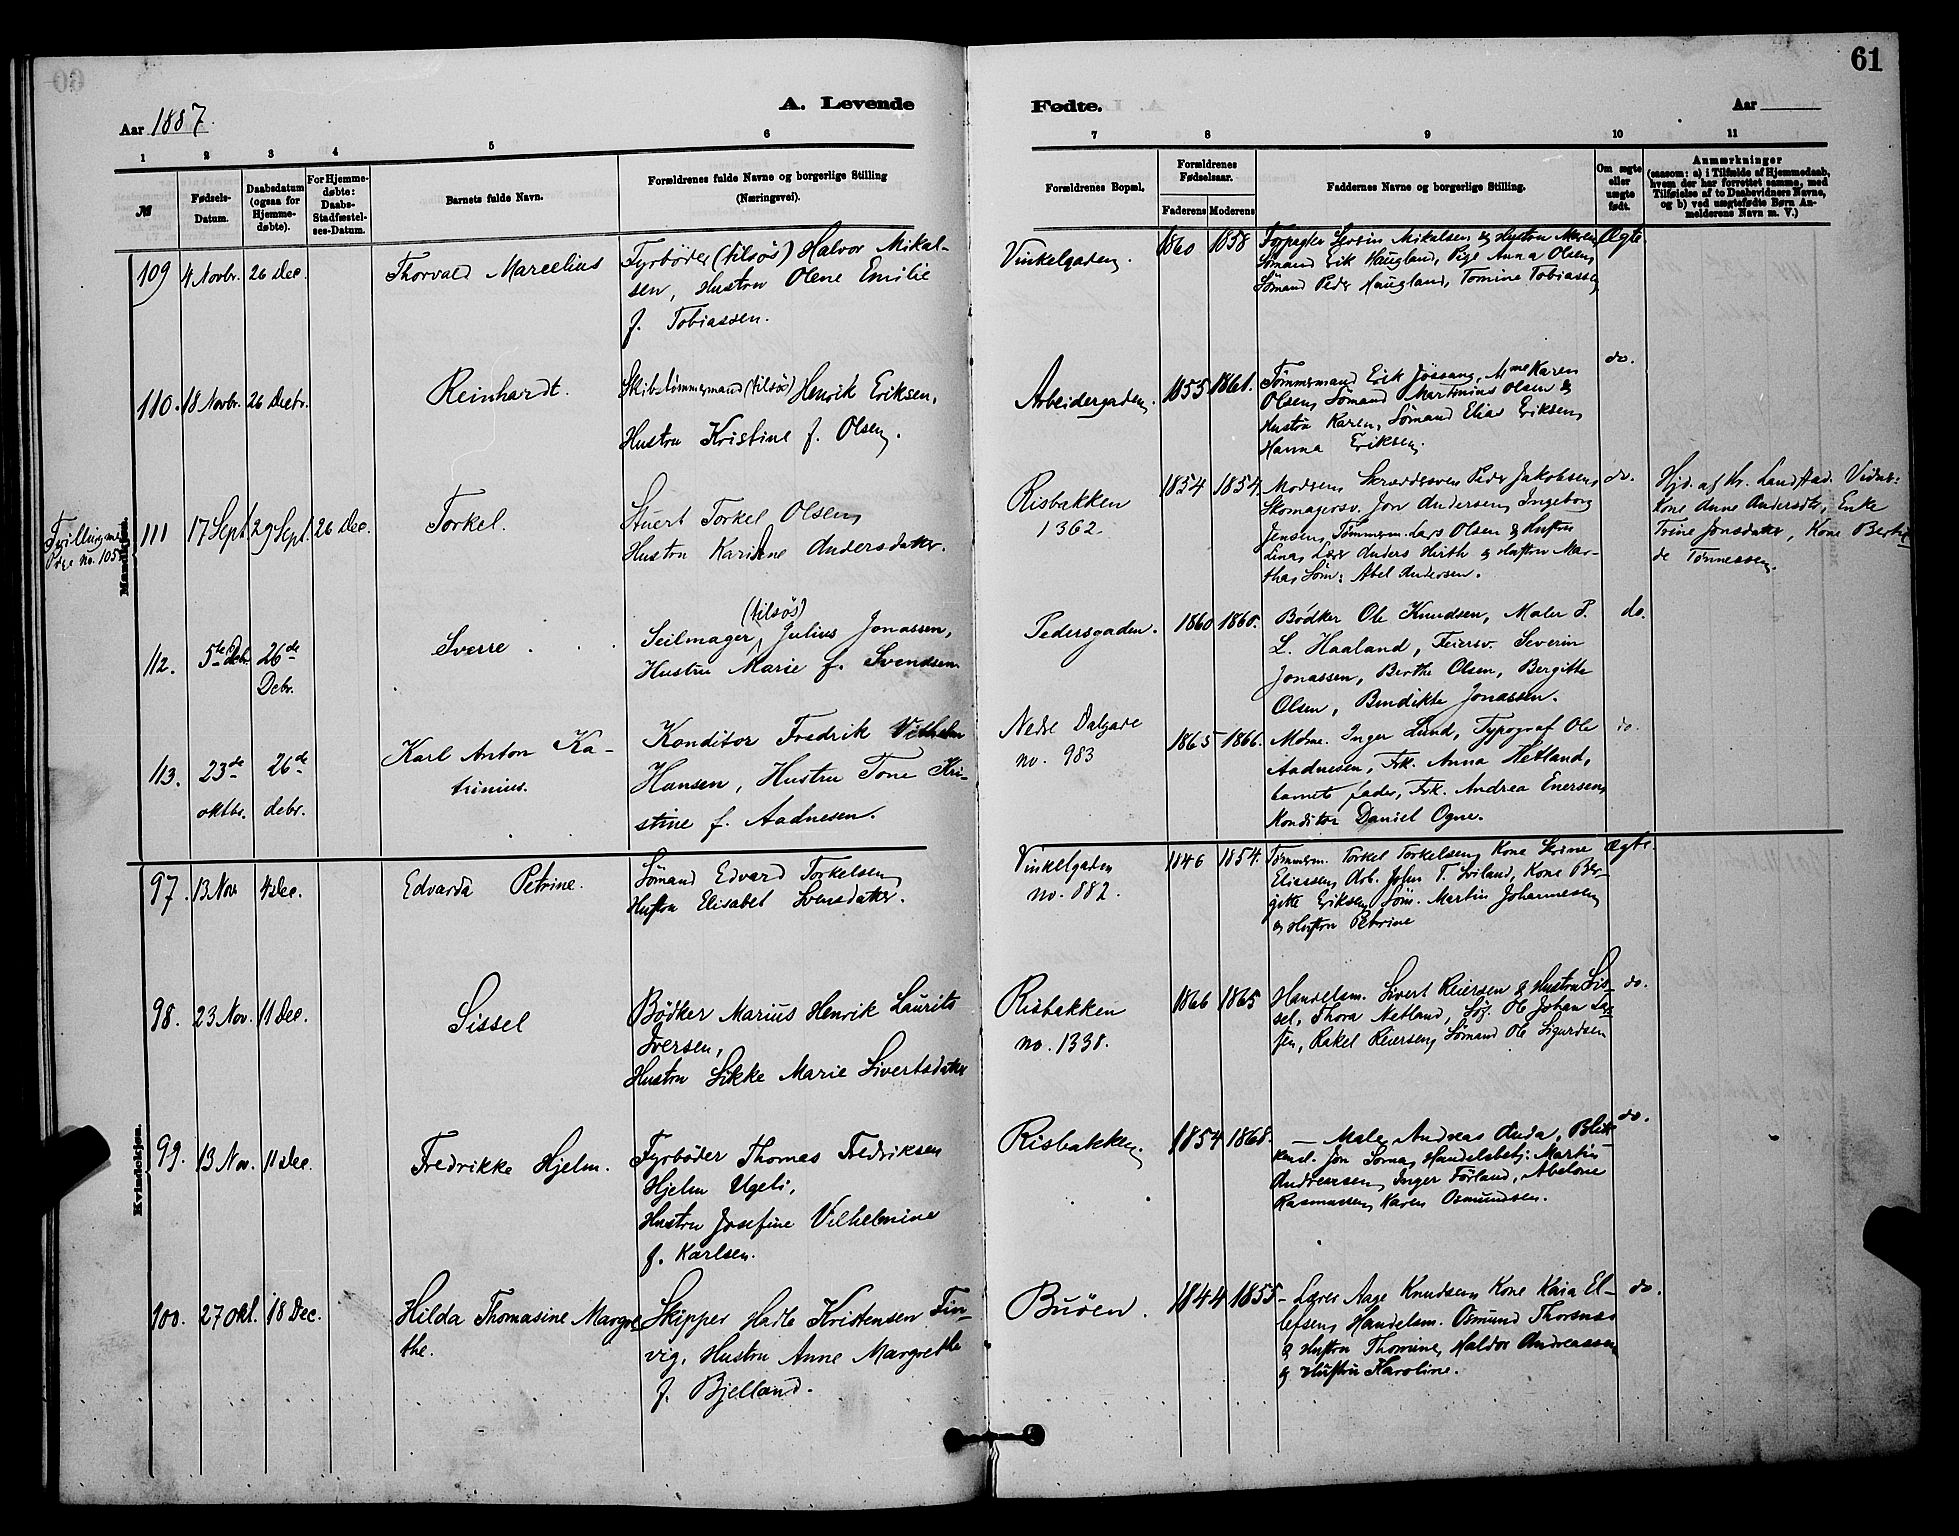 60
61
A. Levende
Fødte.
Aar 1887.
Aar
1 2 3 4 5 6 7 8 9 10 11
№
Fødsels-
Datum.
Daabsdatum
(ogsaa for
Hjemme-
døbte).
For Hjemme-
døbte:
Daabs-
Stadfæstel-
ses-Datum.
Barnets fulde Navn.
Forældrenes fulde Navne og borgerlige Stilling
(Næringsvei).
Forældrenes Bopæl.
Forældrenes
Fødselsaar.
Faderens Moderens
Faddernes Navne og borgerlige Stilling.
Om ægte
eller
uægte
født.
Anmærkninger
(saasom: a) i Tilfælde af Hjemmedaab,
hvem der har forrettet samme, med
Tilføielse af to Daabsvidners Navne,
og b) ved uægtefødte Børn An-
melderens Navn m. V.)
Mandkjøn.
109 4 Novbr. 26 Dec.
Thorvald Marcelius
Fyrbøder (tilsøs) Halvor Mikal-
sen, Hustru Olene Emilie
f. Tobiassen.
Vinkelgaden.
1860 1858
Mikalsen og Hustru Maren
Sømand Erik Haugland, Pige Anna Olsen,
Sømand Peder Haugland, Tomine Tobiassen
Ægte
110. 18 Novbr. 26 Decbr.
Reinhardt.
Skibstømmermand (tilsøs) Henrik Eriksen,
Hustru Kristine f. Olsen.
Arbeidergaden.
1855 1861.
Tømmermand Erik Jøssang, Mme Karen
Olsen, Sømand Martinius Olsen &
Hustru Karen, Sømand Elias Eriksen,
Hanna Eriksen.
do.
Tvilling med
Pige no. 105
111 17 Sept. 29 Sept. 26 Dec.
Torkel.
Stuert Torkel Olsen
Hustru Karine Andersdatter.
Risbakken
1362.
1854 1854.
Moderen, Skræddersven Peder Jakobsen,
Skomagersv. Jon Andersen, Ingeborg
Jensen, Tømmerm. Lars Olsen & Hustru
Lina, Lærer Anders Hirth og Hustru Mar-
tha, Søm: Abel Andersen.
do.
Hjd. af Kr. Landstad. Vidner:
Kone Anne Andersdtr, Enke
Trine Jonsdatter, Kone Berti-
de Tønnessen.
112. 5te Debr. 26de
Debr.
Sverre
Seilmager (tilsøs) Julius Jonassen,
Hustru Marie f. Svendsen
Pedersgaden.
1860 1860.
Bødker Ole Knudsen, Maler P.
L. Haaland, Feiersv. Severin
Jonassen, Berthe Olsen, Bergitte
Olsen, Bendikte Jonassen.
do.
113. 23de 26de
oktbr. debr.
Karl Anton Ka-
trinius.
Konditor Fredrik Vilhelm
Hansen, Hustru Tone Kri-
stine f. Aadnesen.
Nedre Dalgade
no. 983
1865 1866.
Mdme. Inger Lund, Typograf Ole
Aadnesen, Frk. Anna Hetland,
barnets fader, Frk. Andrea Enersen,
Konditor Daniel Ogne.
do.
Kvindekjøn.
97. 13 Nov 4 Dec.
Edvarda Petrine.
Sømand Edvard Torkelsen,
Hustru Elisabet Svensdatter.
Vinkelgaden
no. 882.
1846 1854.
Tømmerm. Torkel Torkelsen, Kone Skrine
Eliassen, Arb. John T. Sviland, Kone Ber-
gitte Eriksen, Søm. Martin Johannesen
og Hustru Petrine
ægte.
98. 23 Nov. 11 Dec.
Sissel
Bødker Marius Henrik Laurits
Iversen,
Hustru Sikke Marie Sivertsdatter
Risbakken
no. 1338.
1866 1865
Handelsm. Sivert Reiersen & Hustru Sis-
sel, Thora Netland, Ole Johan Lar-
sen, Rakel Reiersen, Sømand Ole Sigurdsen
do.
99. 13 Nov. 11 Dec.
Fredrikke Hjelm.
Fyrbøder Thomas Fredriksen
Hjelm Ugeli,
Hustru Josefine Vilhelmine
f. Karlsen.
Risbakken.
1854 1868.
— Maler Andreas Anda, Blik-
kensl. Jon Soma, Handelsbetj: Martin
Andreassen, Inger Førland, Abelone
Rasmussen, Karen Osmundsen.
do.
100. 27 Okt. 18 Dec.
Hilda Thomasine Margre-
the.
Skipper Hadle Kristensen Tin-
vig, Hustru Anne Margrethe
f. Bjelland.
Buøen.
1844 1855
- Lærer Aage Knudsen, Kone Kaia El-
lefsen, Handelsm. Osmund Thorsnæs
& Hustru Thomine, Haldor Andreassen
& Hustru Karoline.
do.